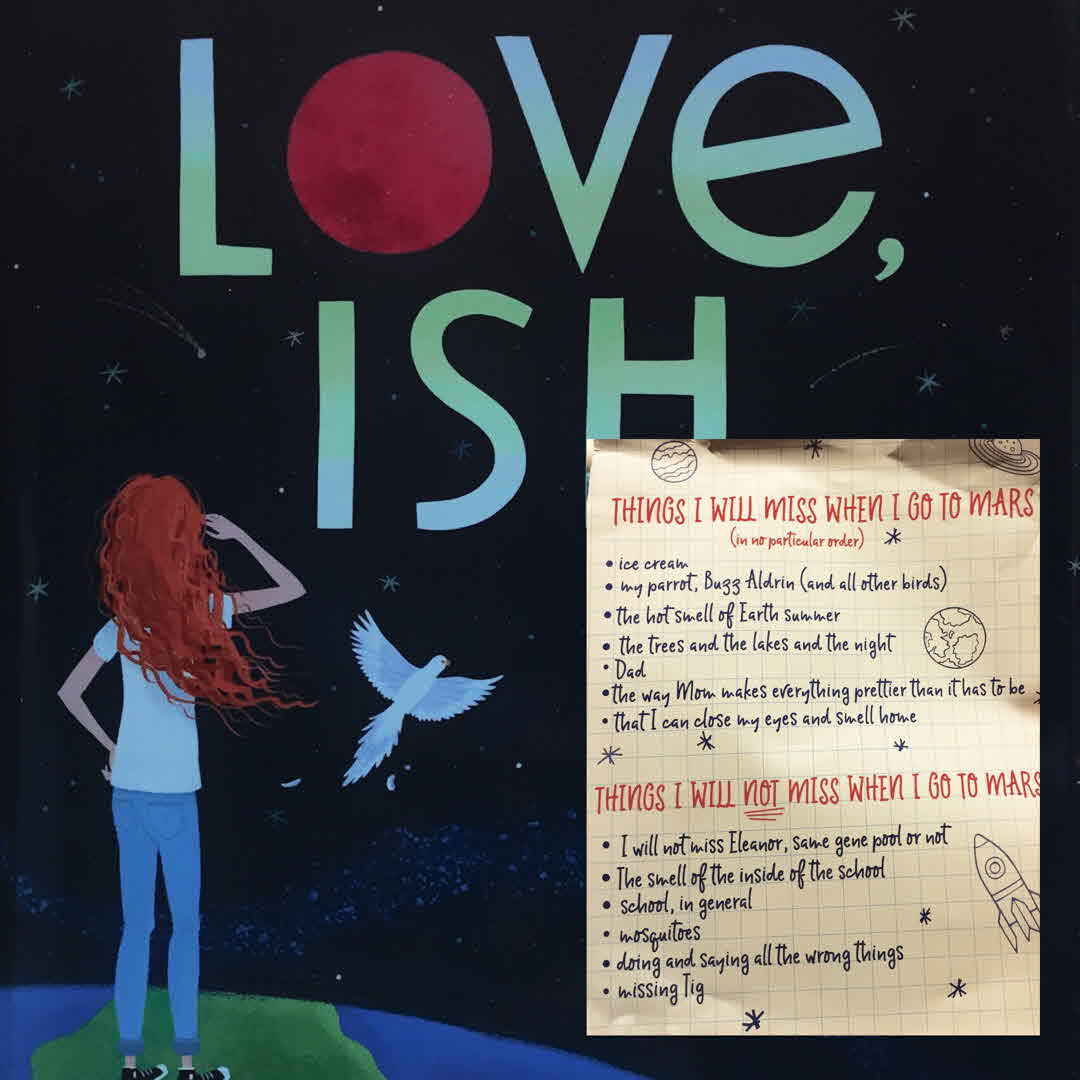 LOVe,
ISH
THINGS I WILL MISS WHEN I GO TO MARS
(in no particular order)
• ice cream
• my parrot, Buzz Aldrin (and all other birds)
• the hot smell of Earth summer
• the trees and the lakes and the night
• Dad
• the way Mom makes everything prettier than it has to be
• that I can close my eyes and smell home
THINGS I WILL NOT MISS WHEN I GO TO MARS
• I will not miss Eleanor, same gene pool or not
• The smell of the inside of the school
• school, in general
• mosquitoes
• doing and saying all the wrong things
• missing Tig